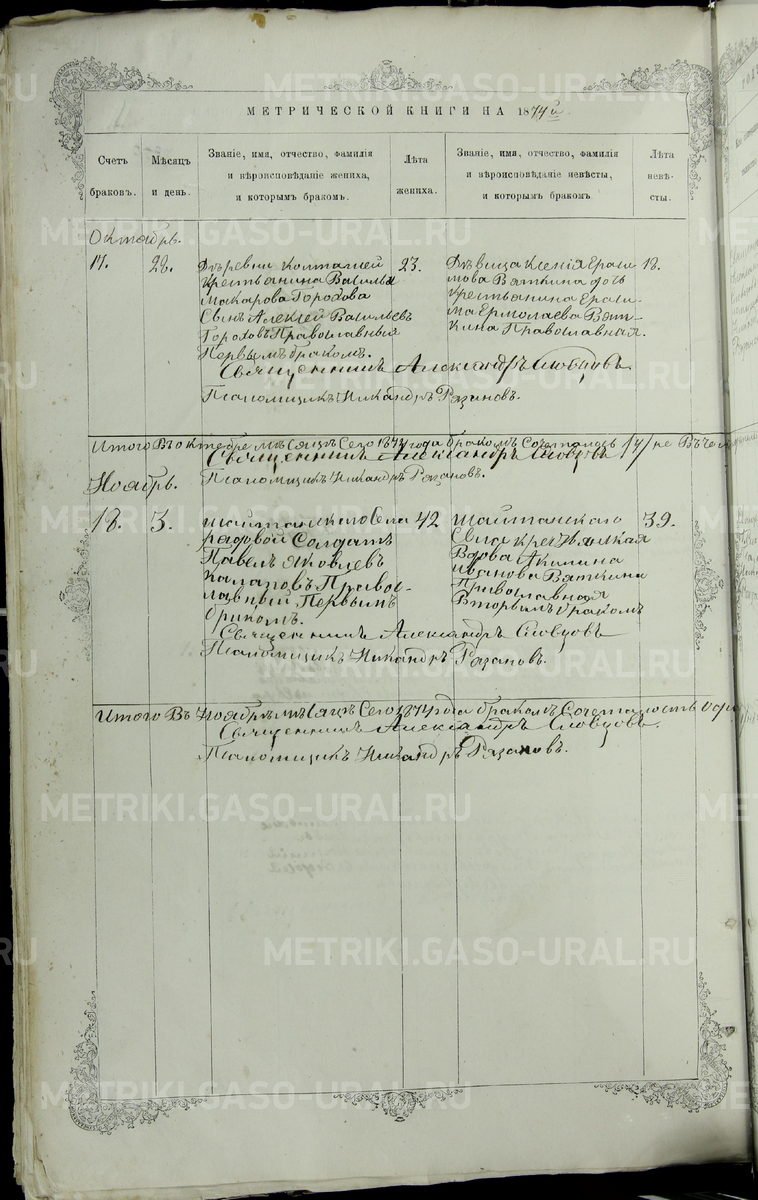 МЕТРИЧЕСКОЙ КНИГИ НА 1874й
Счетъ браковъ.
Мѣсяцъ и день.
Званіе, имя, отчество, фамилія и вѣроисповѣданіе жениха, и которымъ бракомъ.
Лѣта жениха.
Званіе, имя, отчество, фамилія и вѣроисповѣданіе невѣсты, и которымъ бракомъ.
Лѣта невѣсты.
Октябрь.
17.
22.
Крестьянина Василья
Макарова Горохова
Сынъ Алексѣй Васильевъ
Гороховъ Православный
Первымъ бракомъ.
23.
Дѣвица Ксенія Ераси
мова Вяткина дочь
Крестьянина Ераси
ма Ермолаева Вят-
кина Православная.
18.
Священникъ Александръ Словцовъ
Псаломщикъ Никандръ Рязановъ.
Итого Въ октебре мѣсяцѣ Сего 1874 года бракомъ Сочеталось 17
Священникъ Александръ Словцовъ
Псаломщикъ Никандръ Рязановъ.
Ноябрь.
18.
3.
Шайтанскаго Села
рядовой Солдатъ
Павелъ Яковлевъ
Правос-
лавный Первымъ
бракомъ.
42
Шайтанскаго
Села
Вдова Акилина
Иванова Вяткина
Православная
Вторымъ бракомъ
39.
Священникъ Александръ Словцовъ
Псаломщикъ Никандръ Рязановъ.
Итого Въ Ноябрѣ мѣсяцѣ Сего 1874 года бракомъ Сочеталось
Священникъ Александръ Словцовъ.
Псаломщикъ Никандръ Рязановъ.
METRIKI.GASO-URAL.RU